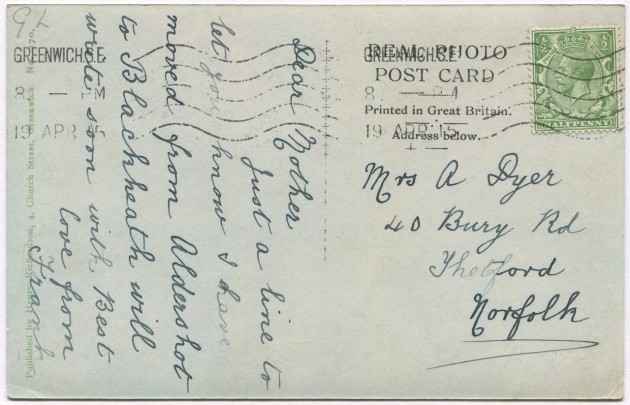 GREENWICH.S.E
8 — PM
19 APR 15
GREENWICH.S.E
19 APR 15
REAL PHOTO
POST CARD
Printed in Great Britain.
Address below.
HALFPENNY
Dear Mother
Just a line to
let you know I have
moved from Aldershot
to Blackheath will
write soon with Best
love from
Frank
Mrs A Dyer
40 Bury Rd
Thetford
Norfolk
Published by Richardson, 4, Church Street, Greenwich.